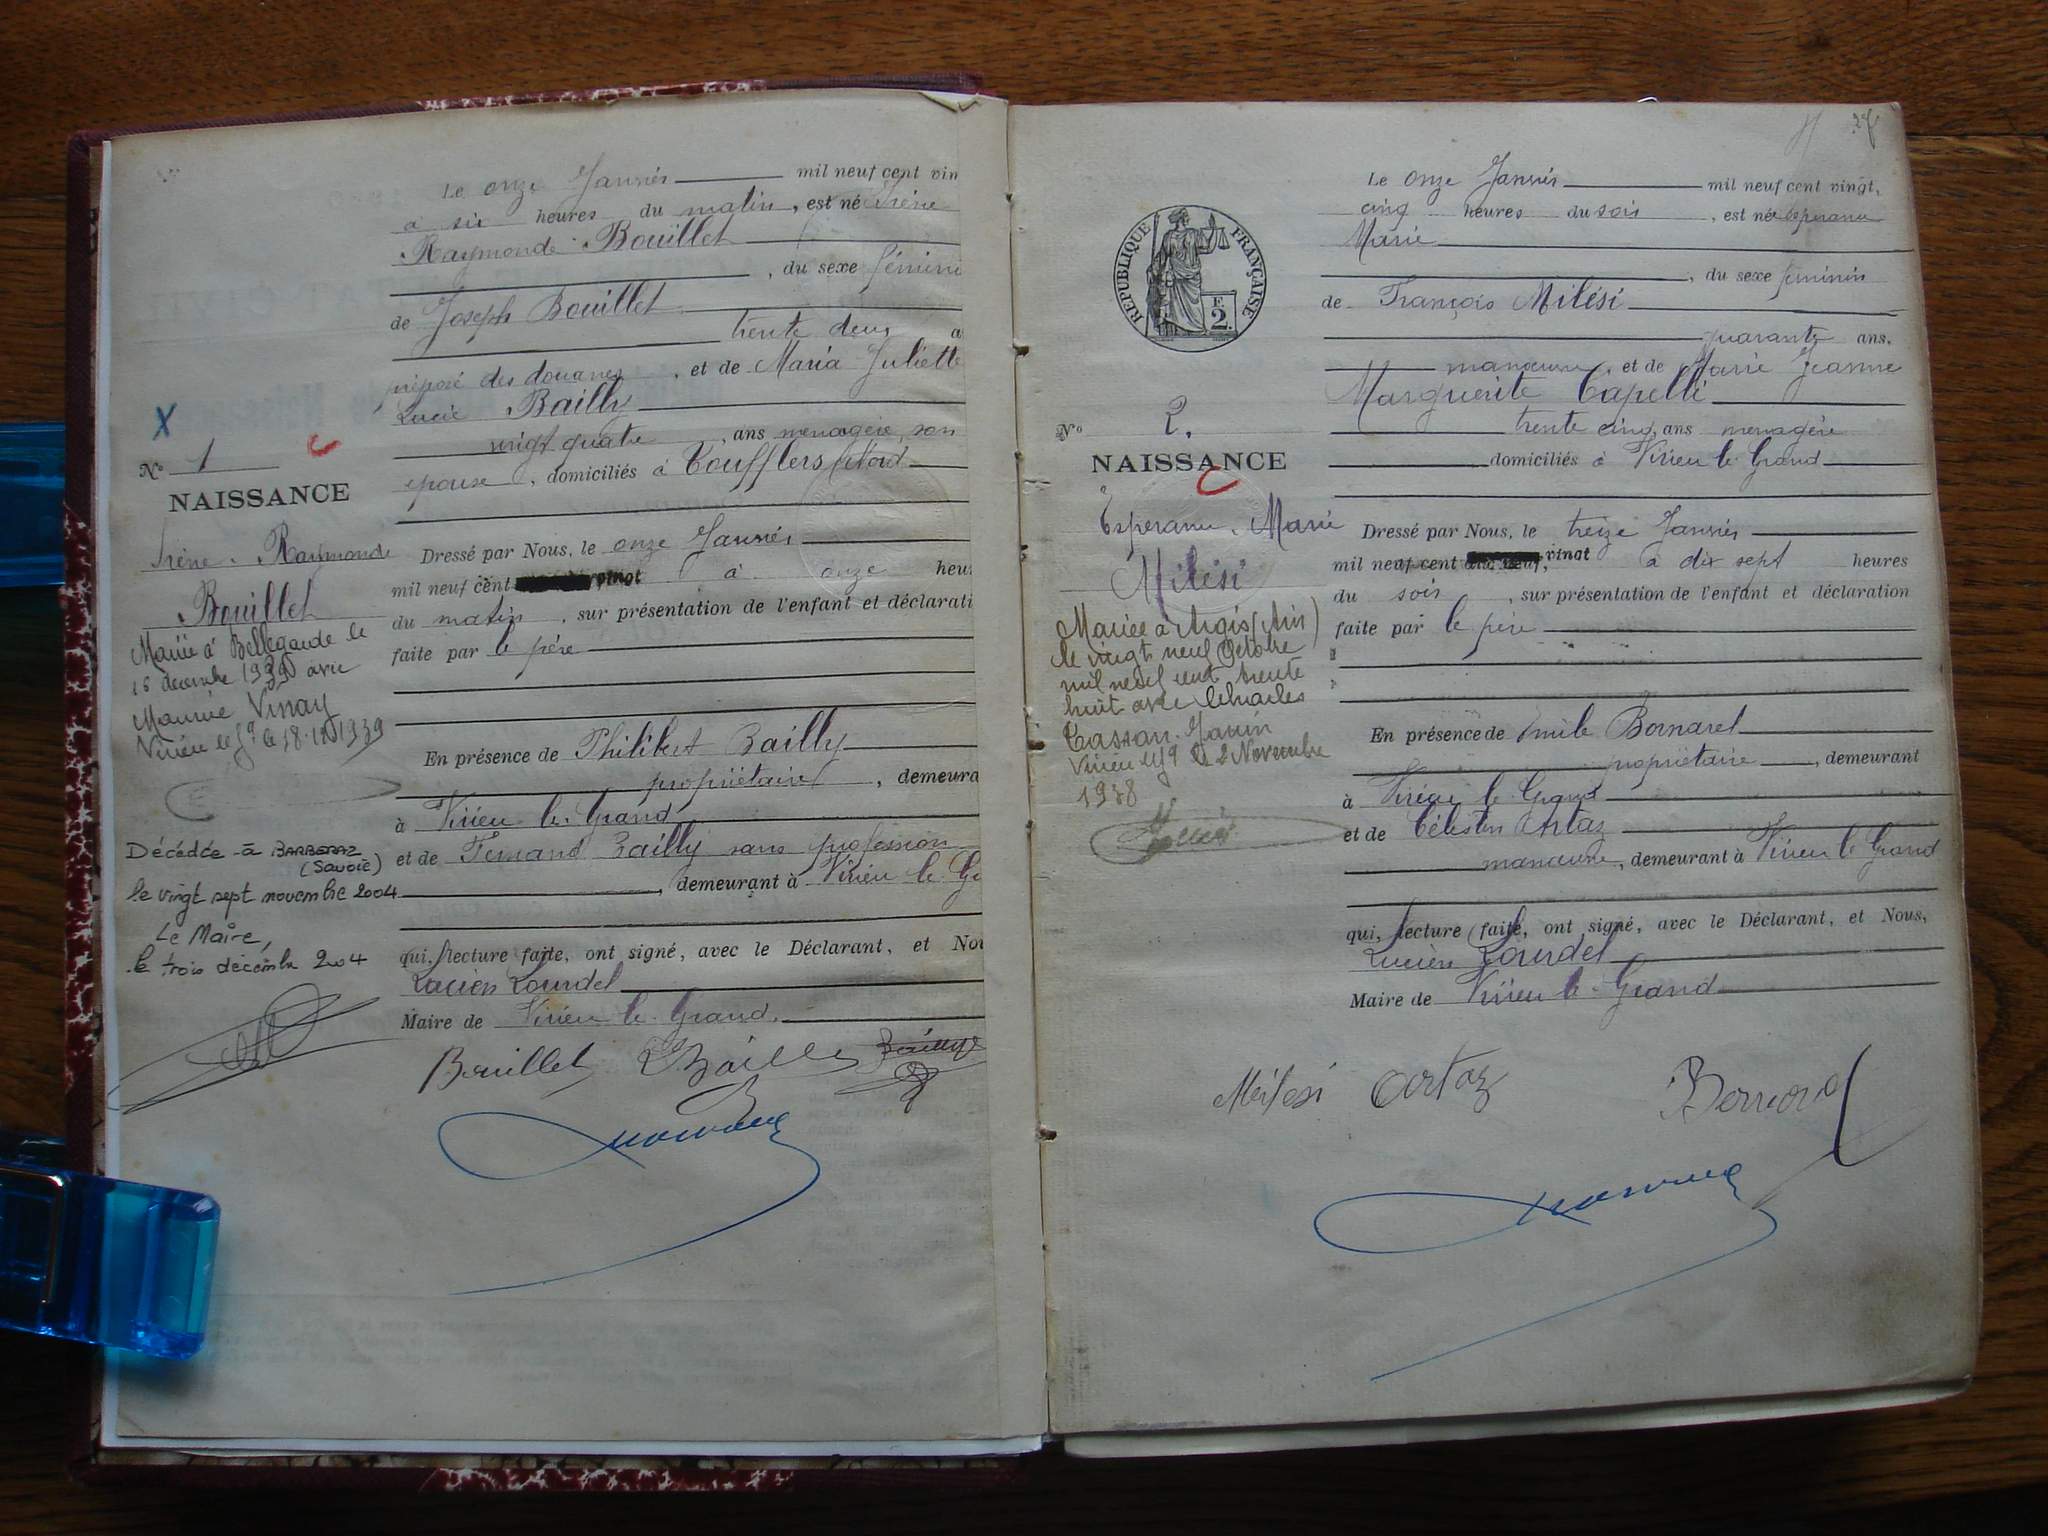 Le onze Janvier mil neuf cent vin
à six heures du matin, est né Irène
Raymonde Bouillet
, du sexe féminin
de Joseph Bouillet
trente deux a
préposé des douanes, et de Maria Juliette
Lucie Bailly
vingt quatre, ans menagère, son
epouse, domiciliés à Toufflers (Nord
X
No 1
NAISSANCE
Irène Raymonde
Bouillet
Mariée à Bellegarde le
16 décembre 1939 avec
Maurice Vinay
Virieu le Gd le 18.12.1939
Décédée à BARBERAZ
(Savoie)
le vingt sept novembre 2004
Le Maire,
le trois décembre 2004
Dressé par Nous, le onze Janvier
mil neuf cent vingt à onze heu
du matin, sur présentation de l'enfant et déclarati
faite par le père
En présence de Philibert Bailly
propriétaire, demeura
à Virieu le Grand
et de Fernand Bailly sans profession
, demeurant à Virieu le Gr
qui, lecture faite, ont signé, avec le Déclarant, et Nou
Lucien Lourdel
Maire de Virieu le Grand.
Bouillet Bailly Bailly
Le onze Janvier mil neuf cent vingt,
cinq heures du soir, est née Esperance
Marie
, du sexe féminin
de François Milési
quarante ans,
manœuvre, et de Marie Jeanne
Marguerite Capelli
trente cinq, ans menagère
domiciliés à Virieu le Grand
RÉPUBLIQUE FRANÇAISE
F.
2.
No 2.
NAISSANCE
Esperance Marie
Milési
Mariée à Argis (Ain)
le vingt neuf Octobre
mil neuf cent trente
huit avec Charles
Tassan
Virieu le Gd le 2 Novembre
1938
Dressé par Nous, le treize Janvier
mil neuf cent dix-neuf, vingt à dix sept heures
du soir, sur présentation de l'enfant et déclaration
faite par le père
En présence de Emile Bornarel
propriétaire, demeurant
à Virieu le Grand
et de Célestin Artaz
manœuvre, demeurant à Virieu le Grand
qui, lecture faite, ont signé, avec le Déclarant, et Nous,
Lucien Lourdel
Maire de Virieu le Grand
Milesi Artaz